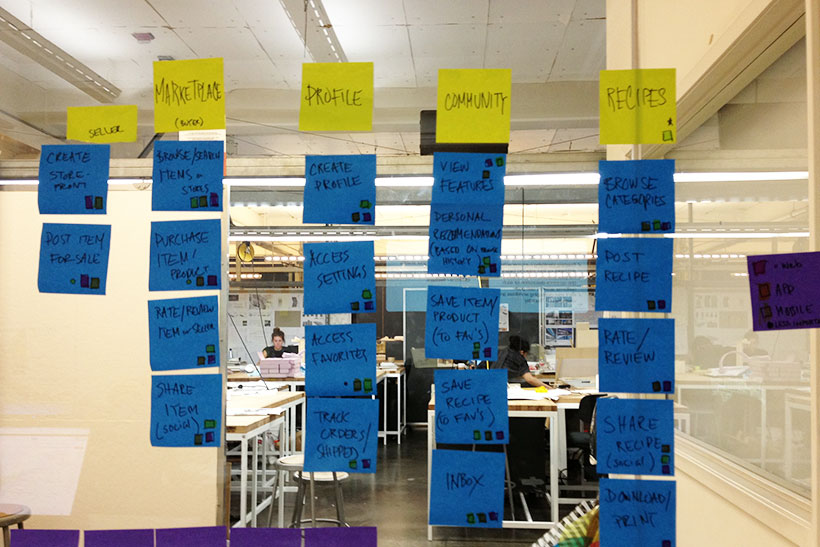 SELLER
CREATE
STORE-
FRONT
POST ITEM
FOR-SALE
MARKETPLACE
(BUYER)
BROWSE/SEARCH
ITEMS &
STORES
PURCHASE
ITEM/
PRODUCT
RATE/REVIEW
ITEM OR SELLER
SHARE
ITEM
(SOCIAL)
PROFILE
CREATE
PROFILE
ACCESS
SETTINGS
ACCESS
FAVORITES
TRACK
ORDERS/
SHIPPED
COMMUNITY
VIEW
FEATURES
PERSONAL
RECOMMENDATIONS
(BASED ON
HISTORY)
SAVE ITEM/
PRODUCT
(TO FAV'S)
SAVE
RECIPE
(TO FAV'S)
INBOX
RECIPES
BROWSE
CATEGORIES
POST
RECIPE
RATE/
REVIEW
SHARE
RECIPE
(SOCIAL)
DOWNLOAD/
PRINT
WEB
APP
MOBILE
LESS IMPORTANT